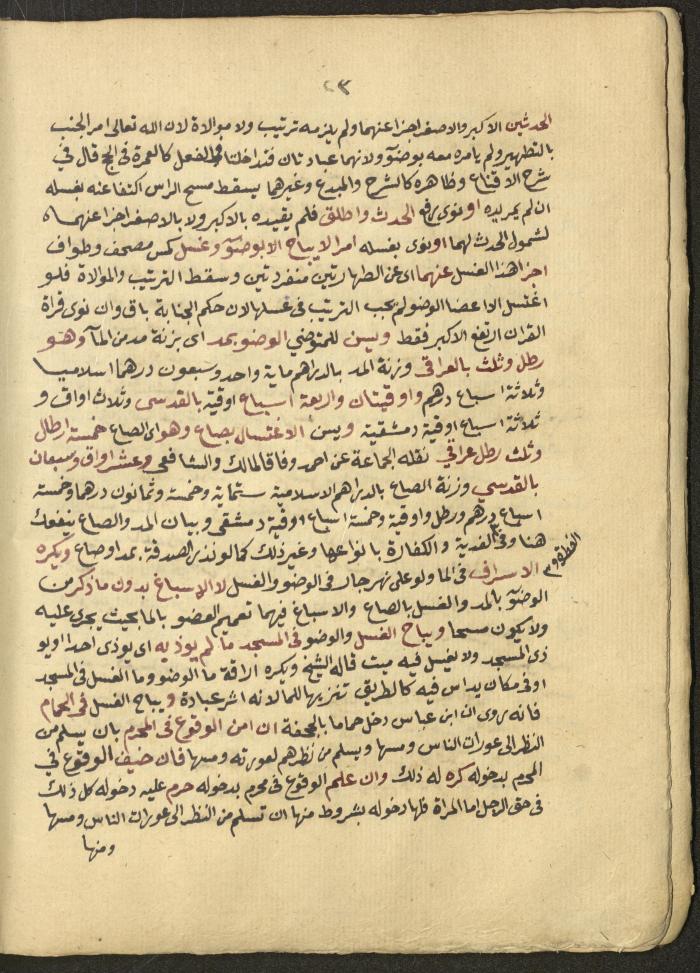 ٢٣
الحدثين الاكبر والاصغر اجزا عنهما ولم يلزمه ترتيب ولا موالاة لان الله تعالى امر الجنب
بالتطهير ولم يامره معه بوضوٓ ولانهما عبادتان فتداخلتا في الفعل كالعمرة في الحج قال في
شرح الاقناع وظاهره كالشرح والمبدع وغيرهما يسقط مسح الراس اكتفا عنه بغسله
ان لم يمر يده او نوى رفع الحدث واطلق فلم يقيده بالاكبر ولا بالاصغر اجزا عنهما
لشمول الحدث لهما او نوى بغسله امرا لا يباح الا بوضوٓ وغسل كمس مصحف وطواف
اجزا هذا الغسل عنهما اى عن الطهارتين منفردتين وسقط الترتيب والموالاة فلو
اغتسل الا اعضا الوضو لم يجب الترتيب في غسلها لان حكم الجنابة باق وان نوى قراة
القران ارتفع الاكبر فقط ويسن للمتوضي الوضو بمد اى بزنة مد من المآ وهو
رطل وثلث بالعراقي وزنة المد بالدراهم ماية واحد وسبعون درهما اسلاميا
وثلاثة اسباع درهم واوقيتان واربعة اسباع اوقية بالقدسي وثلاث اواق و
ثلاثة اسباع اوقية دمشقية ويسن الاغتسال بصاع وهو اى الصاع خمسة ارطال
وثلث رطل عراقي نقله الجماعة عن احمد وفاقا لمالك والشافعي وعشر اواق وسبعان
بالقدسي وزنة الصاع بالدراهم الاسلامية ستماية وخمسة وثمانون درهما وخمسة
اسباع درهم ورطل واوقية وخمسة اسباع اوقية دمشقي وبيان المد والصاع ينفعك
هنا وفي الفدية والكفارة بانواعها وغير ذلك كما لو نذر الصدقة بمد او صاع ويكره
الفطرة و
الاسراف في الما ولو على نهر جار في الوضو والغسل لا الاسباغ بدون ما ذكر من
الوضوٓ بالمد والغسل بالصاع والاسباغ فيهما تعميم العضو بالما بحيث يجرى عليه
ولا يكون مسحا ويباح الغسل والوضو في المسجد ما لم يوذ به اى يوذى احدا او يو
ذى المسجد ولا يغسل فيه ميت قاله الشيخ ويكره اراقة ما الوضو وما الغسل في المسجد
او في مكان يداس فيه كالطريق تنزيها للما لانه اثر عبادة ويباح الغسل في الحمام
فانه يروى ان ابن عباس دخل حماما بالجحفة ان امن الوقوع في المحرم بان يسلم من
النظر الى عورات الناس ومسها ويسلم من نظرهم لعورته ومسها فان خيف الوقوع في
المحرم بدخوله كره له ذلك وان علم الوقوع في محرم بدخوله حرم عليه دخوله كل ذلك
في حق الرجل اما المراة فلها دخوله بشروط منها ان تسلم من النظر الى عورات الناس ومسها
ومنها